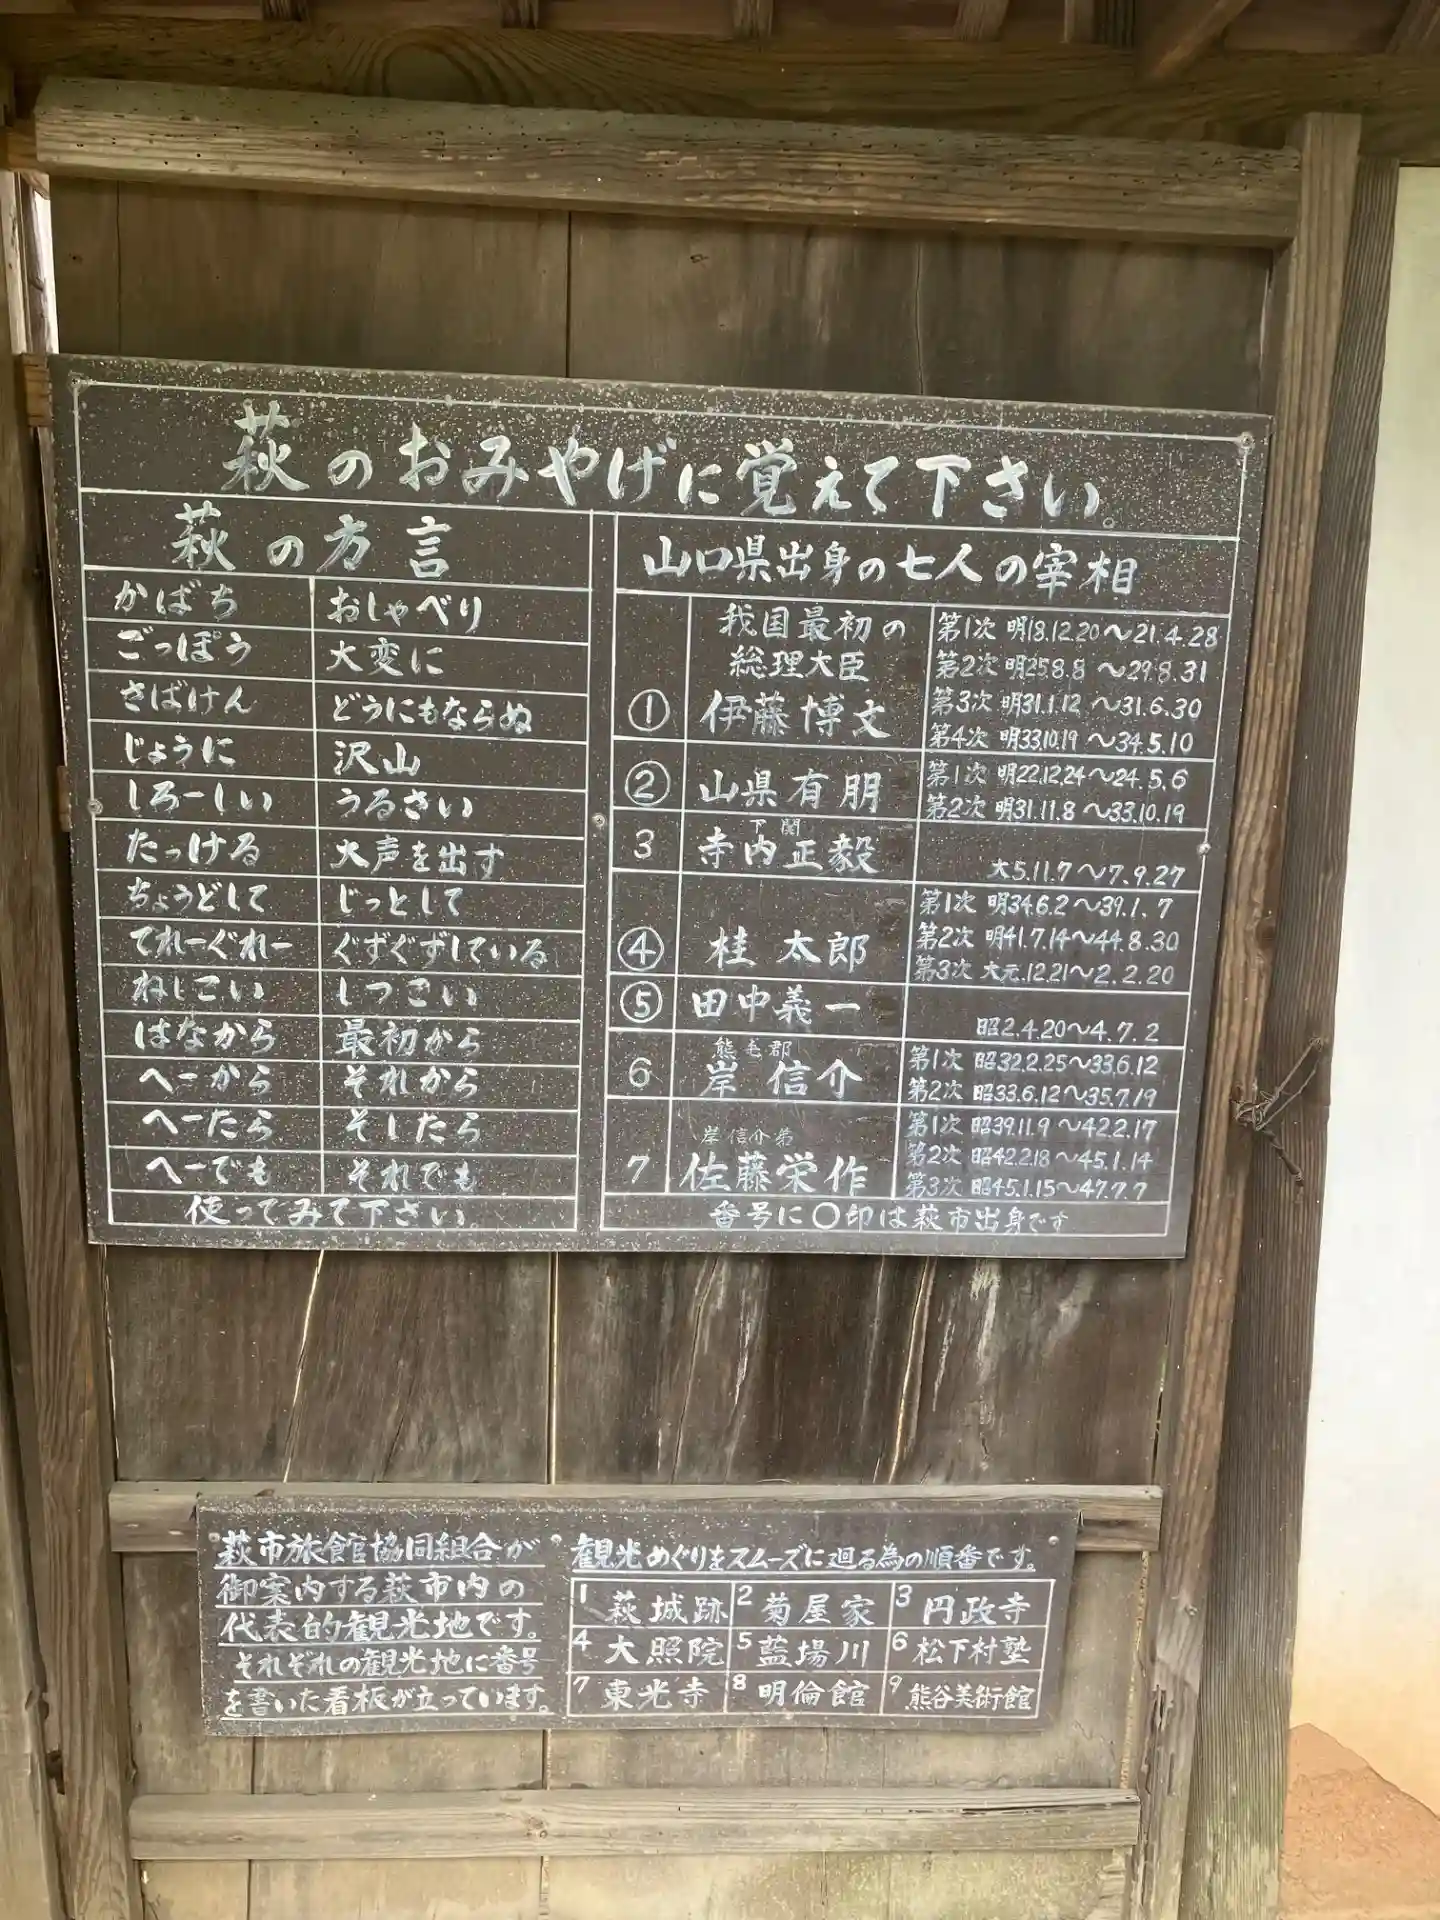 萩のおみやげに覚えて下さい。
萩の方言
かばち おしゃべり
ごっぽう 大変に
さばけん どうにもならぬ
じょうに 沢山
しろーしい うるさい
たっける 大声を出す
ちょうどして じっとして
てれーぐれー ぐずぐずしている
ねしこい しつこい
はなから 最初から
へーから それから
へーたら そしたら
へーでも それでも
使ってみて下さい。
山口県出身の七人の宰相
我国最初の
総理大臣
① 伊藤博文
第1次 明18.12.20〜21.4.28
第2次 明25.8.8 〜29.8.31
第3次 明31.1.12 〜31.6.30
第4次 明33.10.19 〜34.5.10
② 山県有朋
第1次 明22.12.24〜24.5.6
第2次 明31.11.8 〜33.10.19
下関
3 寺内正毅
大5.11.7 〜7.9.27
④ 桂太郎
第1次 明34.6.2〜39.1.7
第2次 明41.7.14〜44.8.30
第3次 大元.12.21〜2.2.20
⑤ 田中義一
昭2.4.20〜4.7.2
熊毛郡
6 岸信介
第1次 昭32.2.25〜33.6.12
第2次 昭33.6.12〜35.7.19
岸信介弟
7 佐藤栄作
第1次 昭39.11.9 〜42.2.17
第2次 昭42.2.18 〜45.1.14
第3次 昭45.1.15〜47.7.7
番号に〇印は萩市出身です
萩市旅館協同組合が
御案内する萩市内の
代表的観光地です。
それぞれの観光地に番号
を書いた看板が立っています。
観光めぐりをスムーズに廻る為の順番です。
1 萩城跡 2 菊屋家 3 円政寺
4 大照院 5 藍場川 6 松下村塾
7 東光寺 8 明倫館 9 熊谷美術館